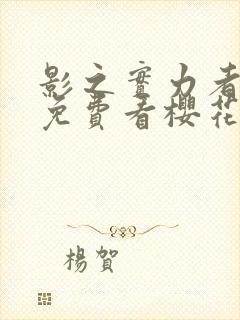 影之實力者
免費看櫻花
楊賀